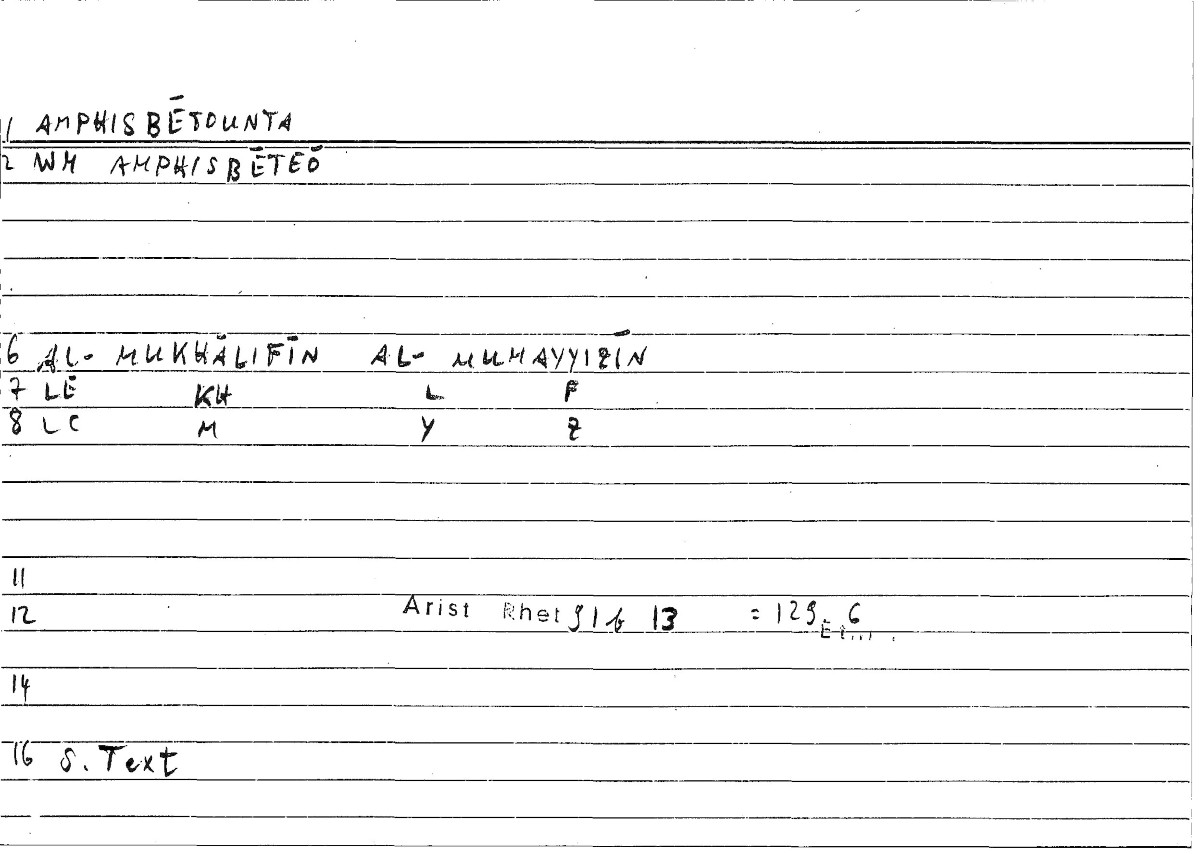 1 AMPHISBĒTOUNTA
2 WM AMPHISBĒTEŌ
6 AL- MUKHĀLIFĪN AL- MUMAYYIZĪN
7 LĒ KH L F
8 LC M Y Z
11
12 Arist Rhet 91b 13 = 129, 6
14
16 S. Text